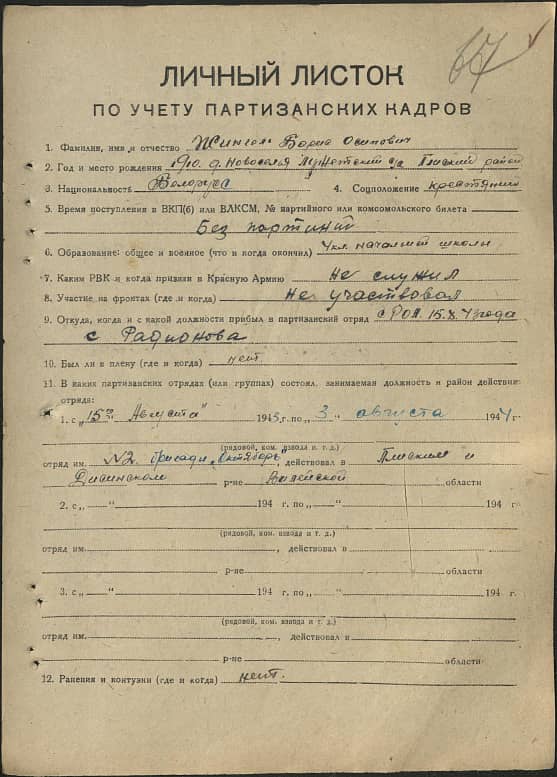 67
ЛИЧНЫЙ ЛИСТОК
ПО УЧЕТУ ПАРТИЗАНСКИХ КАДРОВ
1. Фамилия, имя и отчество Борис Осипович
2. Год и место рождения 1910. д. Новоселья с/с Плиский район
3. Национальность Белорусс 4. Соцположение крестянин
5. Время поступления в ВКП(б) или ВЛКСМ, № партийного или комсомольского билета
Без партиний
6. Образование: общее и военное (что и когда окончил) 4 кл. начальной школы
7. Каким РВК и когда призван в Красную Армию Не служил
8. Участие на фронтах (где и когда) Не участвовал
9. Откуда, когда и с какой должности прибыл в партизанский отряд с РОА. 15.8.43 года
с Радионова
10. Был ли в плену (где и когда) нет.
11. В каких партизанских отрядах (или группах) состоял, занимаемая должность и район действия
отряда:
1. с „15го Августа" 1943 г. по „3" августа 1944 г.
(рядовой, ком. взвода и т. д.)
отряд им. №2. бригади „Октябрь", действовал в Плиском и
Дисинском р-не Вилейской области
2. с „ " 194 г. по „ " 194 г.
(рядовой, ком. взвода и т. д.)
отряд им. , действовал в
р-не области
3. с „ " 194 г. по „ " 194 г.
(рядовой, ком. взвода и т. д.)
отряд им. , действовал в
р-не области
12. Ранения и контузии (где и когда) нет.